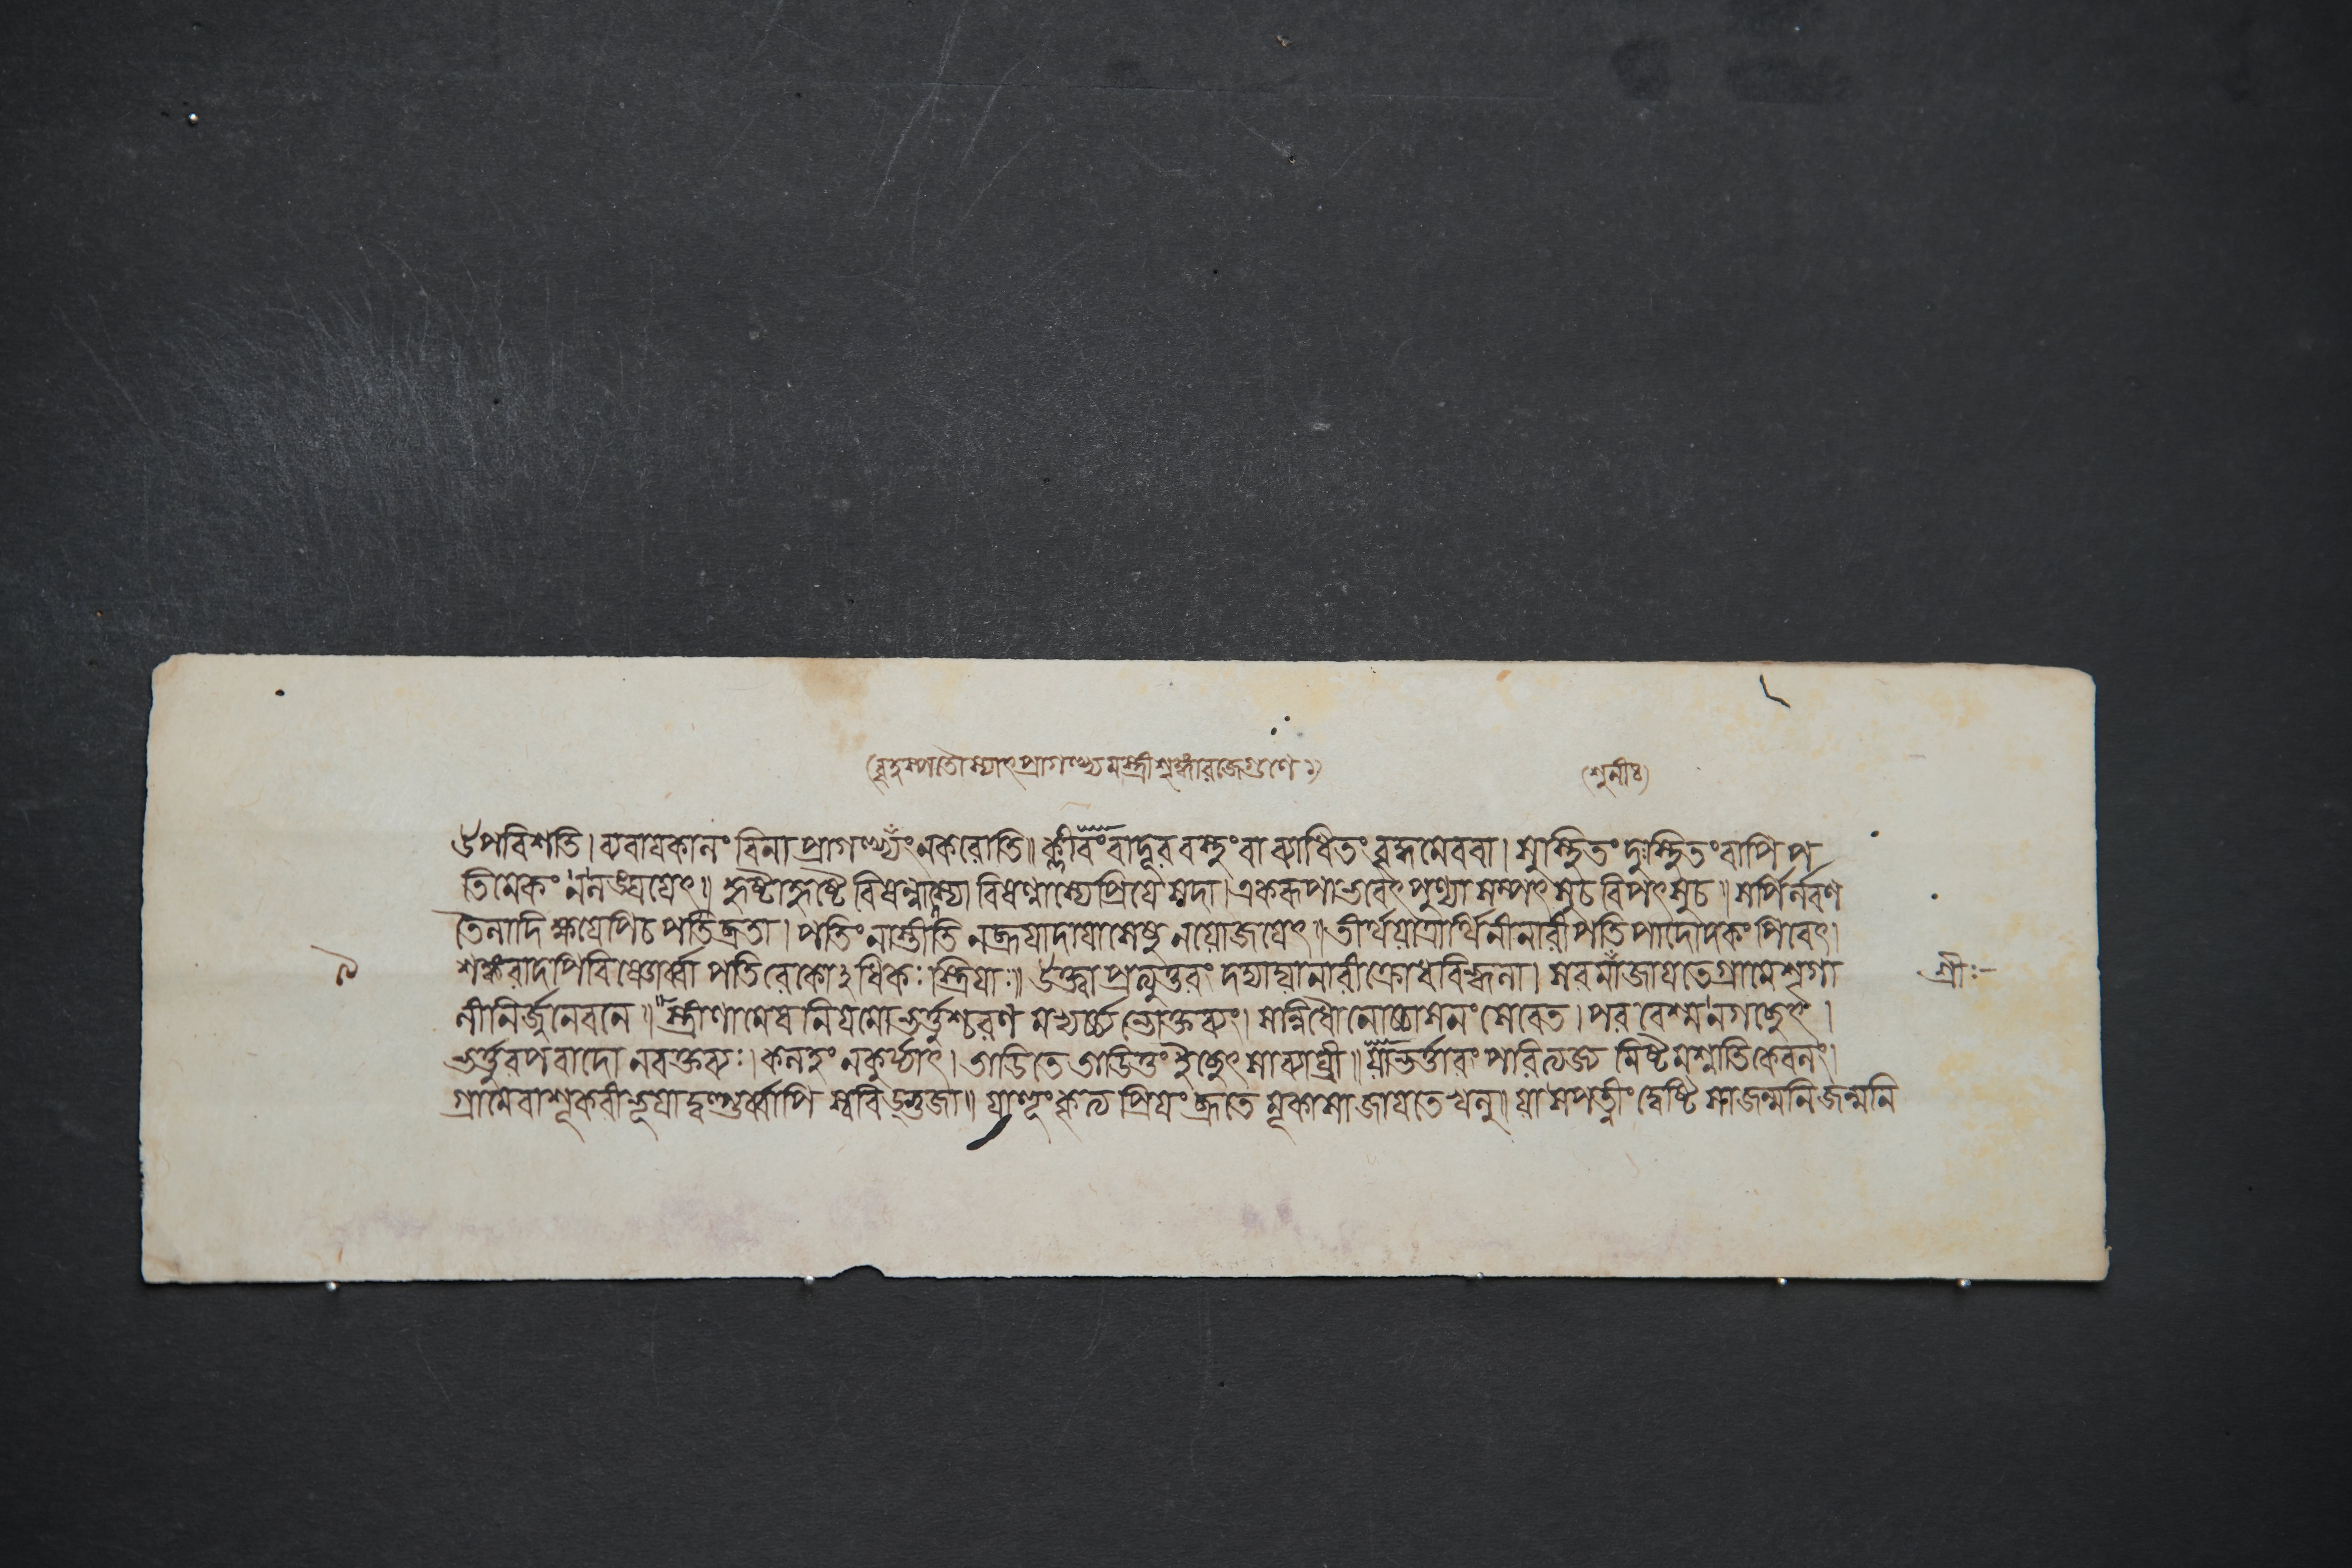 (শুনীঃ)
উপবিশতি। ব্যবায়কালং বিনা প্রাগল্ভ্যং ন করোতি॥ ক্লীবং বা দুরবস্থং বা ব্যাধিতং বৃদ্ধমেব বা। সুস্থিতং দুঃস্থিতং বাপি প
তিমেকং ন লঙ্ঘয়েৎ॥ হৃষ্টা হৃষ্টে বিষণ্ণাস্যা বিষণ্ণাস্যে প্রিয়ে সদা। একরূপা ভবেৎ পুণ্যা সম্পৎসু চ বিপৎসু চ॥ সর্পির্লবণ
তৈলাদিক্ষয়েপি চ পতিব্রতা। পতিং নাস্তীতি ন ব্রূয়াদায়াসেষু ন যোজয়েৎ॥ তীর্থ র্থিনী নারী পতিপাদোদকং পিবেৎ।
৯ শঙ্করাদপি বিষ্ণোর্ব্বা পতিরেকোঽধিকঃ স্ত্রিয়াঃ॥ উক্ত্বা প্রত্যুত্তরং দদ্যাদ্যা নারী ক্রোধবিহ্বলা। সরমা জায়তে গ্রামে শৃগা শ্রীঃ
লী নির্জনে বনে॥ স্ত্রীণামেষ নিয়মো ভর্ত্তুশ্চরণমভ্যর্চ্চ্য ভোক্তব্যং। সন্নিধৌ নোচ্চাসনং সেবেত। পরবেশ্ম ন গচ্ছেৎ।
ভর্ত্তুরপবাদো ন বক্তব্যঃ। কলহং ন কুর্য্যাৎ। তাডিতে তাডিতুং চেচ্ছেৎ সা ব্যাঘ্রী॥ যা ভর্ত্তারং পরিত্যজ্য মিষ্টমশ্নাতি কেবলং।
গ্রামে বা শূকরী ভূয়াদ্বল্গুর্ব্বাপি স্ববিড্ভুজা॥ যা প্রিয়ং ব্রূতে মূকা সা জায়তে খলু॥ যা সপত্নীং দ্বেষ্টি সা জন্মনি জন্মনি